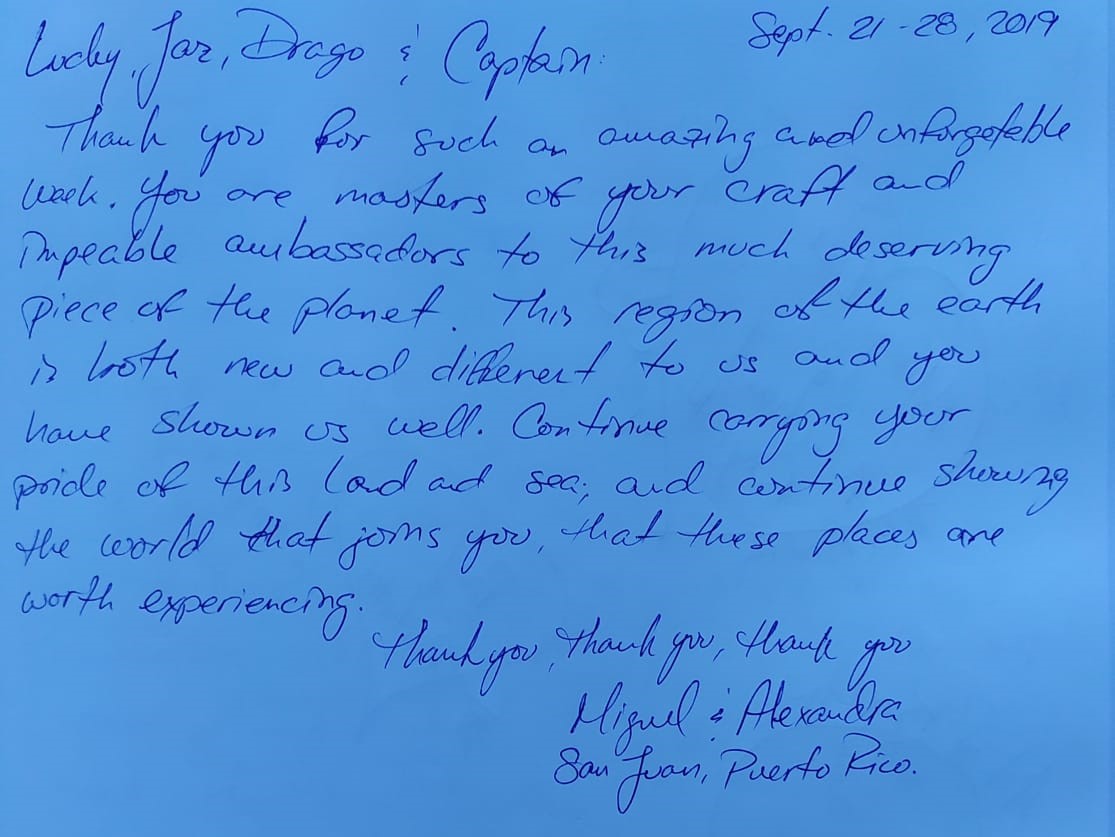 Sept. 21-28, 2019
Lucky, Jaz, Drago & Captain:
Thank you for such an amazing and unforgetable
week. You are masters of your craft and
impeable ambassadors to this much deserving
piece of the planet. This region of the earth
is both new and different to us and you
have shown us well. Continue carrying your
pride of this land and sea; and continue showing
the world that joins you, that these places are
worth experiencing.
Thank you, thank you, thank you
Miguel & Alexandra
San Juan, Puerto Rico.